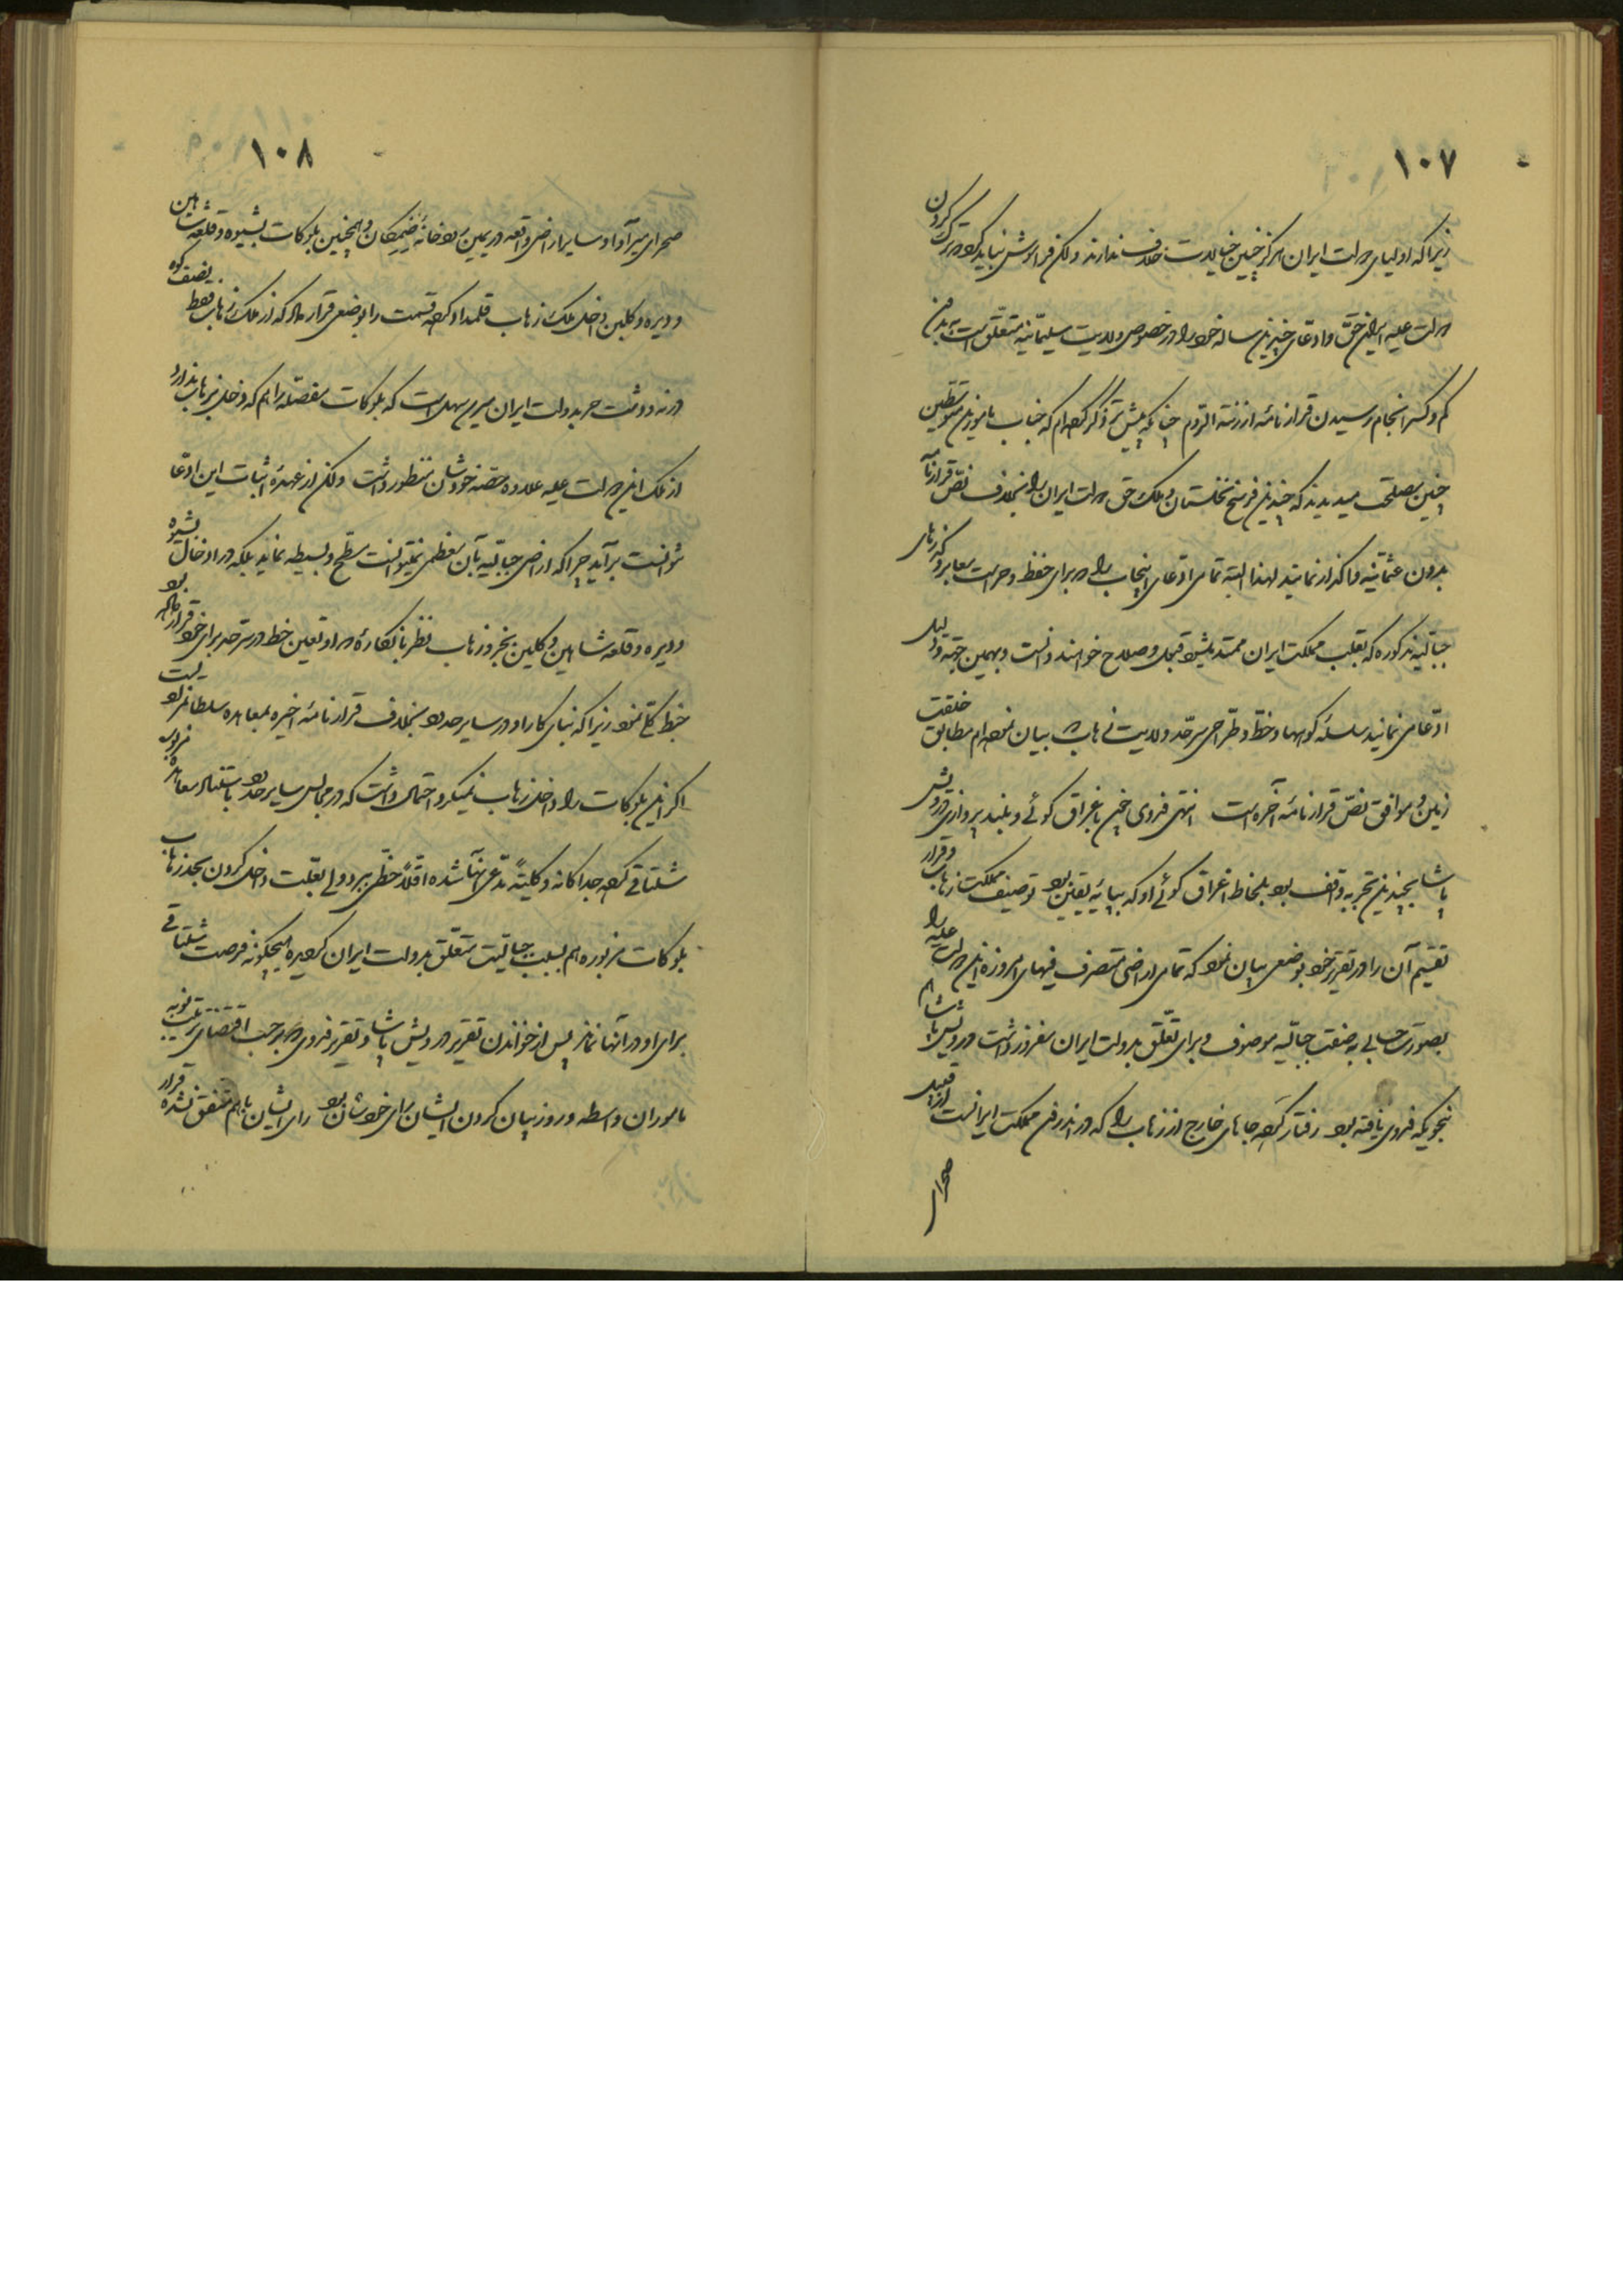 ۱۰۷
زیرا که اولیای دولت ایران هرگز چنین خیالات خلاف ندارند ولکن فراموش نباید کرد که ترک کردن
دولت علیه ایران حق و ادعای چندین ساله خود را در خصوص ولایت سلیمانیه متعلق است به بدون
کم و کسر انجام رسیدن قرارنامه ارزنة الروم چنانکه پیش تر ذکر کرده‌ام که جناب مامورین متوسطین
چنین مصلحت میدیدند که چندین فرسخ نخلستان و ملک حق دولت ایران را بخلاف نص قرارنامه
بدون عثمانیه واگذار نمایند لهذا البته تمامی ادعای اینجانب را در برای حفظ و حراست معابر و گذرهای
جبالیه مذکوره که بقلب مملکت ایران ممتد میشود قبول و صلاح خواهند دانست و بهمین جهة و دلیل
ادعا می‌نمایند سلسله کوهها و خط و طراحی سرحد ولایت زهاب که بیان نموده‌ام مطابق خلقت
زمین و موافق نص قرارنامه آخره است انتهی فدوی چون باغراق گوئی و بلند پروازی درویش
پاشا بچندین تجربه واقف بود بملاحظه اغراق گوئی او که بپایه یقین بود توصیف مملکت زهاب و قرار
تقسیم آن را در تقریر خود بوضعی بیان نمود که تمامی اراضی متصرف فیهای امروزه این دولت علیه را
بصورت حسابی به صفت جبالیه موصوف و برای تعلق بدولت ایران مفروز داشت درویش پاشا هم
بنحویکه فدوی یافته بود رفتار کرده جاهای خارج از زهاب را که در اندرون مملکت ایرانست از قبیل
صحرای
۱۰۸
صحرای بیرآوا و سایر اراضی واقعه در یمین رودخانه ضیمکان و همچنین بلوکات بشیوه و قلعه شاهین
و دیره و کلین داخل ملک زهاب قلمداد کرده قسمت را بوضعی قرار داد که از ملک زهاب فقط نصف کوه
درنه و دشت حر بدولت ایران میرسد سهل است که بلوکات مفصله را هم که دخلی بزهاب ندارد
از ملک این دولت علیه علاوه حصه خودشان منظور داشت ولکن از عهده اثبات این ادعا
نتوانست برآید چرا که اراضی جبالیه بآن معظمی نمیتوانست سطح و بسیطه نماید بلکه در ادخال بشیوه
و دیره و قلعه شاهین و کلین بحدود زهاب نظر بانکه اراده او تعیین خط در سرحد برای خود قرار داده بود
خبط کلی نمود زیرا که بنای کار او در سایر حدود بخلاف قرارنامه اخیره بمعاهده سلطان مراد است
اگر این بلوکات را داخل زهاب نمیکرد احتمال داشت که در مجالس سایر حدود باستناد معاهده مزبوره
شلتاقی کرده جداگانه و کلیتاً مدعی آنها شده اقلاً حظی ببرد ولی بعلت داخل کردن بحد زهاب
بلوکات مزبوره هم بسبب جبالیت متعلق بدولت ایران گردیده هیچگونه فرصت شلتاقی
برای او در آنها نماند پس از خواندن تقریر درویش پاشا و تقریر فدوی در بر حسب اقتضای ترتیب نوبه
ماموران واسطه و روز بیان کردن ایشان رای خودشان بود رای ایشان با هم متفق نشده قرار